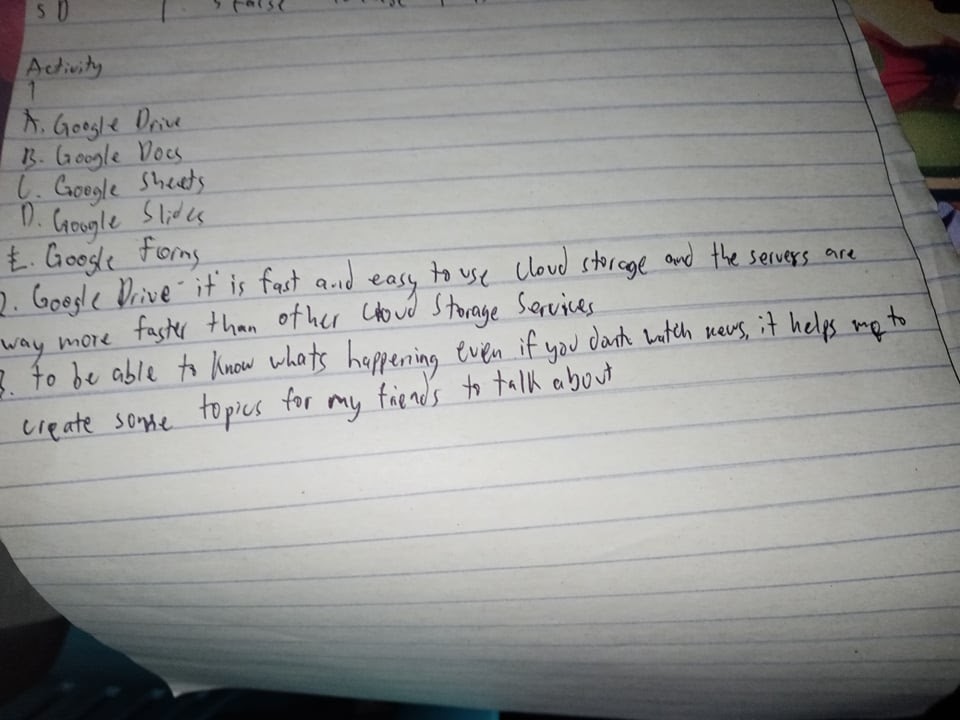 5 D
Activity
1
A. Google Drive
B. Google Docs
C. Google Sheets
D. Google Slides
E. Google Forms
2. Google Drive - it is fast and easy to use cloud storage and the servers are
way more faster than other cloud storage services
3. to be able to know whats happening even if you dont watch news, it helps me to
create some topics for my friends to talk about